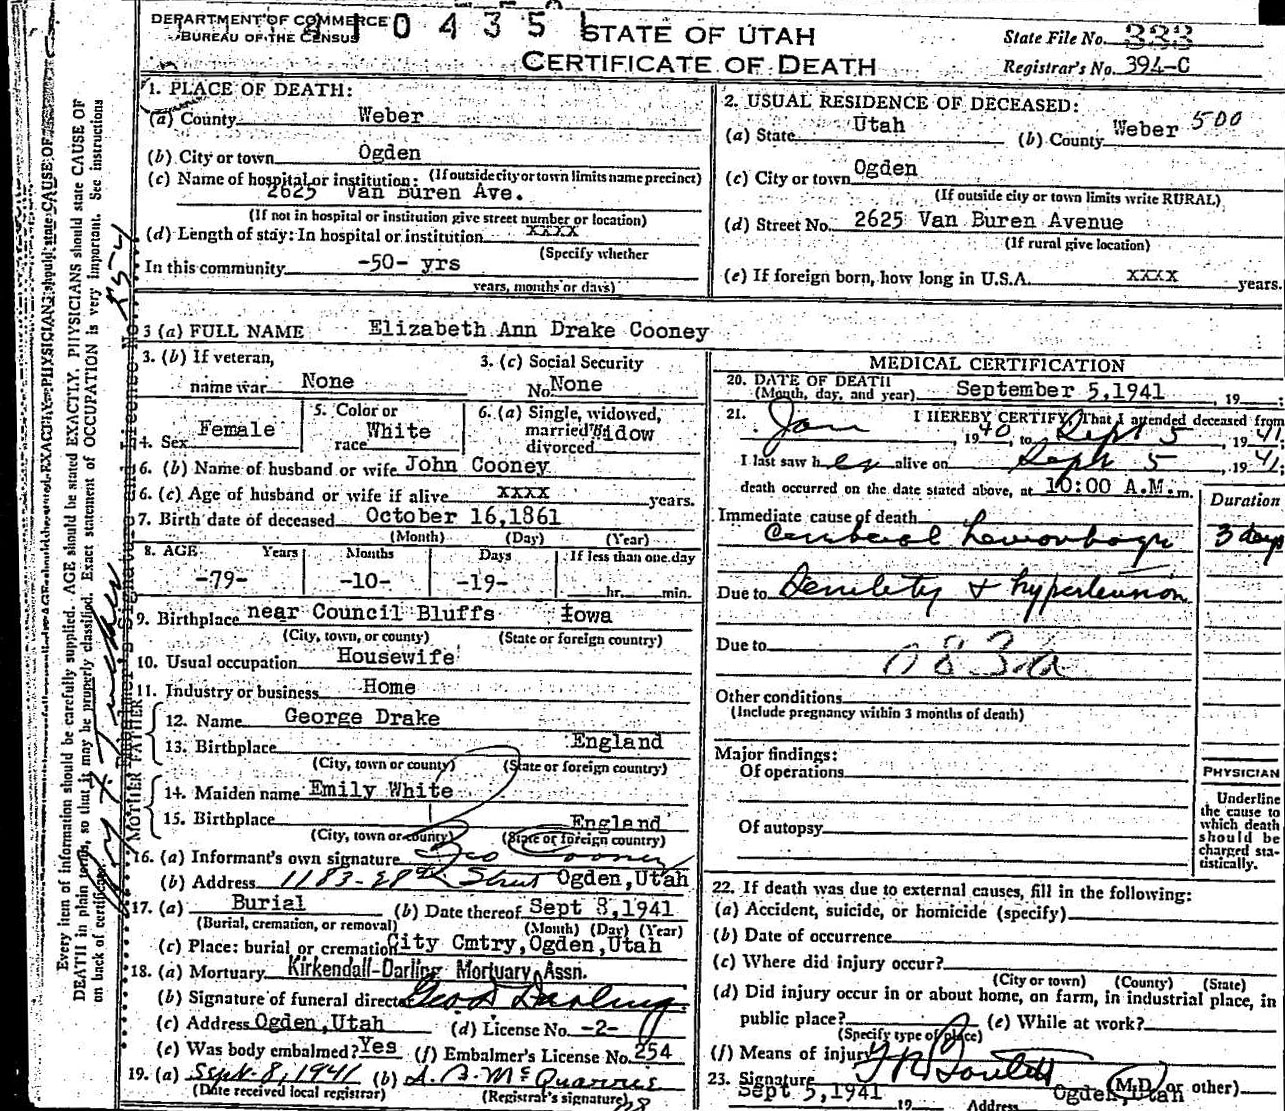 DEPARTMENT OF COMMERCE
BUREAU OF THE CENSUS
41 0 4 3 5 1
STATE OF UTAH
CERTIFICATE OF DEATH
State File No. 333
Registrar's No. 394-C
1. PLACE OF DEATH:
(a) County Weber
(b) City or town Ogden
(If outside city or town limits name precinct)
(c) Name of hospital or institution:
2625 Van Buren Ave.
(If not in hospital or institution give street number or location)
(d) Length of stay: In hospital or institution xxxx
(Specify whether
In this community -50- yrs
years, months or days)
2. USUAL RESIDENCE OF DECEASED:
(a) State Utah (b) County Weber 500
(c) City or town Ogden
(If outside city or town limits write RURAL)
(d) Street No. 2625 Van Buren Avenue
(If rural give location)
(e) If foreign born, how long in U.S.A. xxxx years.
3 (a) FULL NAME Elizabeth Ann Drake Cooney
3. (b) If veteran,
name war None
3. (c) Social Security
No. None
4. Sex Female
5. Color or
race White
6. (a) Single, widowed,
married Widow
divorced
6. (b) Name of husband or wife John Cooney
6. (c) Age of husband or wife if alive xxxx years.
7. Birth date of deceased October 16,1861
(Month) (Day) (Year)
8. AGE Years Months Days If less than one day
-79- -10- -19- hr. min.
9. Birthplace near Council Bluffs Iowa
(City, town, or county) (State or foreign country)
10. Usual occupation Housewife
11. Industry or business Home
FATHER
12. Name George Drake
13. Birthplace England
(City, town or county) (State or foreign country)
MOTHER
14. Maiden name Emily White
15. Birthplace England
(City, town or county) (State or foreign country)
16. (a) Informant's own signature Geo Cooney
(b) Address 1183-28th Street Ogden,Utah
17. (a) Burial (b) Date thereof Sept 8,1941
(Burial, cremation, or removal) (Month) (Day) (Year)
(c) Place: burial or cremation City Cmtry,Ogden,Utah
18. (a) Mortuary Kirkendall-Darling Mortuary Assn.
(b) Signature of funeral director Geo D Darling
(c) Address Ogden,Utah (d) License No. -2-
(e) Was body embalmed? Yes (f) Embalmer's License No. 254
19. (a) Sept. 8, 1941 (b)
(Date received local registrar) (Registrar's signature)
MEDICAL CERTIFICATION
20. DATE OF DEATH
(Month, day, and year) September 5,1941 , 19
21. I HEREBY CERTIFY, That I attended deceased from
Jan , 1940, to Sept 5 , 1941
I last saw her alive on Sept 5 , 1941;
death occurred on the date stated above, at 10:00 A.M. m.
Duration
Immediate cause of death
Cerebral hemorrhage 3 days
Due to Senility & hypertension
Due to
083-a
Other conditions
(Include pregnancy within 3 months of death)
Major findings:
Of operations
Of autopsy
PHYSICIAN
Underline
the cause to
which death
should be
charged sta-
tistically.
22. If death was due to external causes, fill in the following:
(a) Accident, suicide, or homicide (specify)
(b) Date of occurrence
(c) Where did injury occur?
(City or town) (County) (State)
(d) Did injury occur in or about home, on farm, in industrial place, in
public place? (e) While at work?
(Specify type of place)
(f) Means of injury
23. Signature (M.D. or other)
Sept 5,1941 Ogden,Utah
19 Address
Every item of information should be carefully supplied. AGE should be stated EXACTLY. PHYSICIANS should state CAUSE OF
DEATH in plain terms, so that it may be properly classified. Exact statement of OCCUPATION is very important. See instructions
on back of certificate.